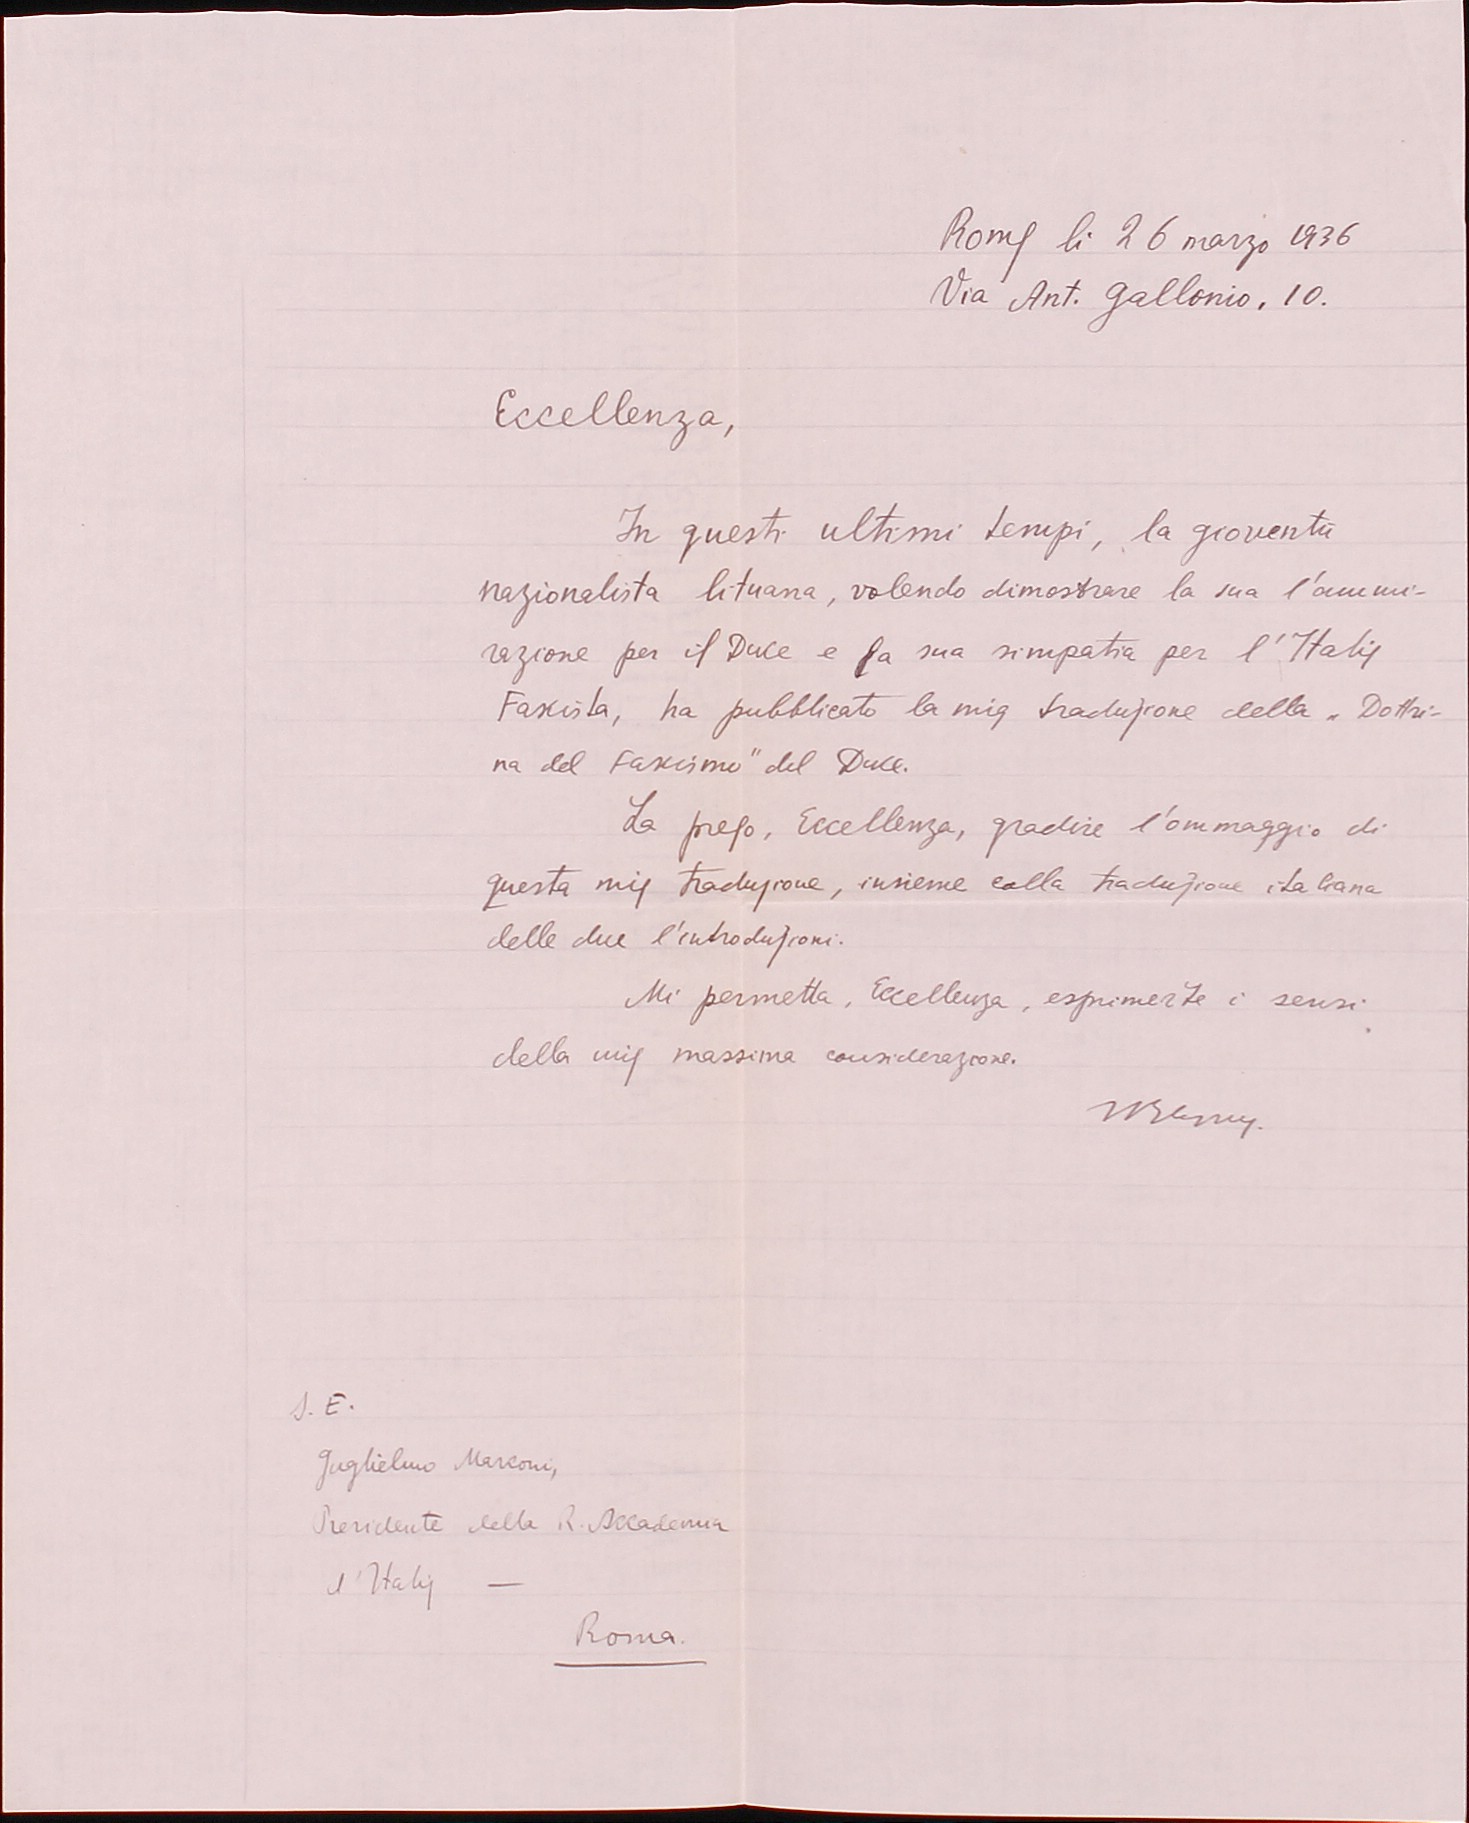 Roma li 26 marzo 1936
Via Ant. Gallonio, 10.
Eccellenza,
In questi ultimi tempi, la gioventù
nazionalista lituana, volendo dimostrare la sua l'ammi-
razione per il Duce e la sua simpatia per l'Italia
Fascista, ha pubblicato la mia traduzione della „Dottri-
na del Fascismo" del Duce.
La prego, Eccellenza, gradire l'ommaggio di
questa mia traduzione, insieme colla traduzione italiana
delle due l'introduzioni.
Mi permetta, Eccellenza, esprimerLe i sensi
della mia massima considerazione.
S. E.
Guglielmo Marconi,
Presidente della R. Accademia
d'Italia —
Roma.